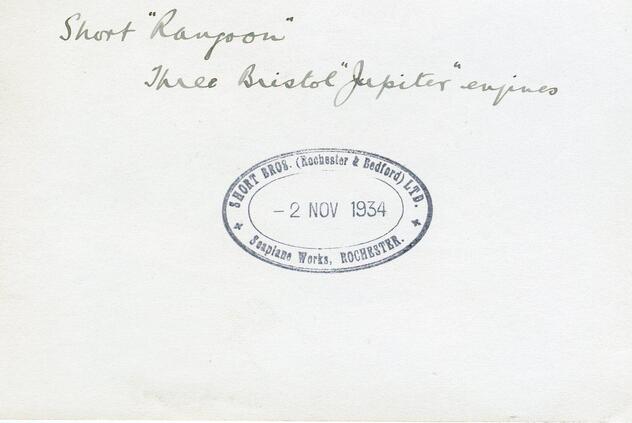 Short "Rangoon"
Three Bristol "Jupiter" engines
SHORT BROS. (Rochester & Bedford) LTD.
- 2 NOV 1934
Seaplane Works, ROCHESTER.